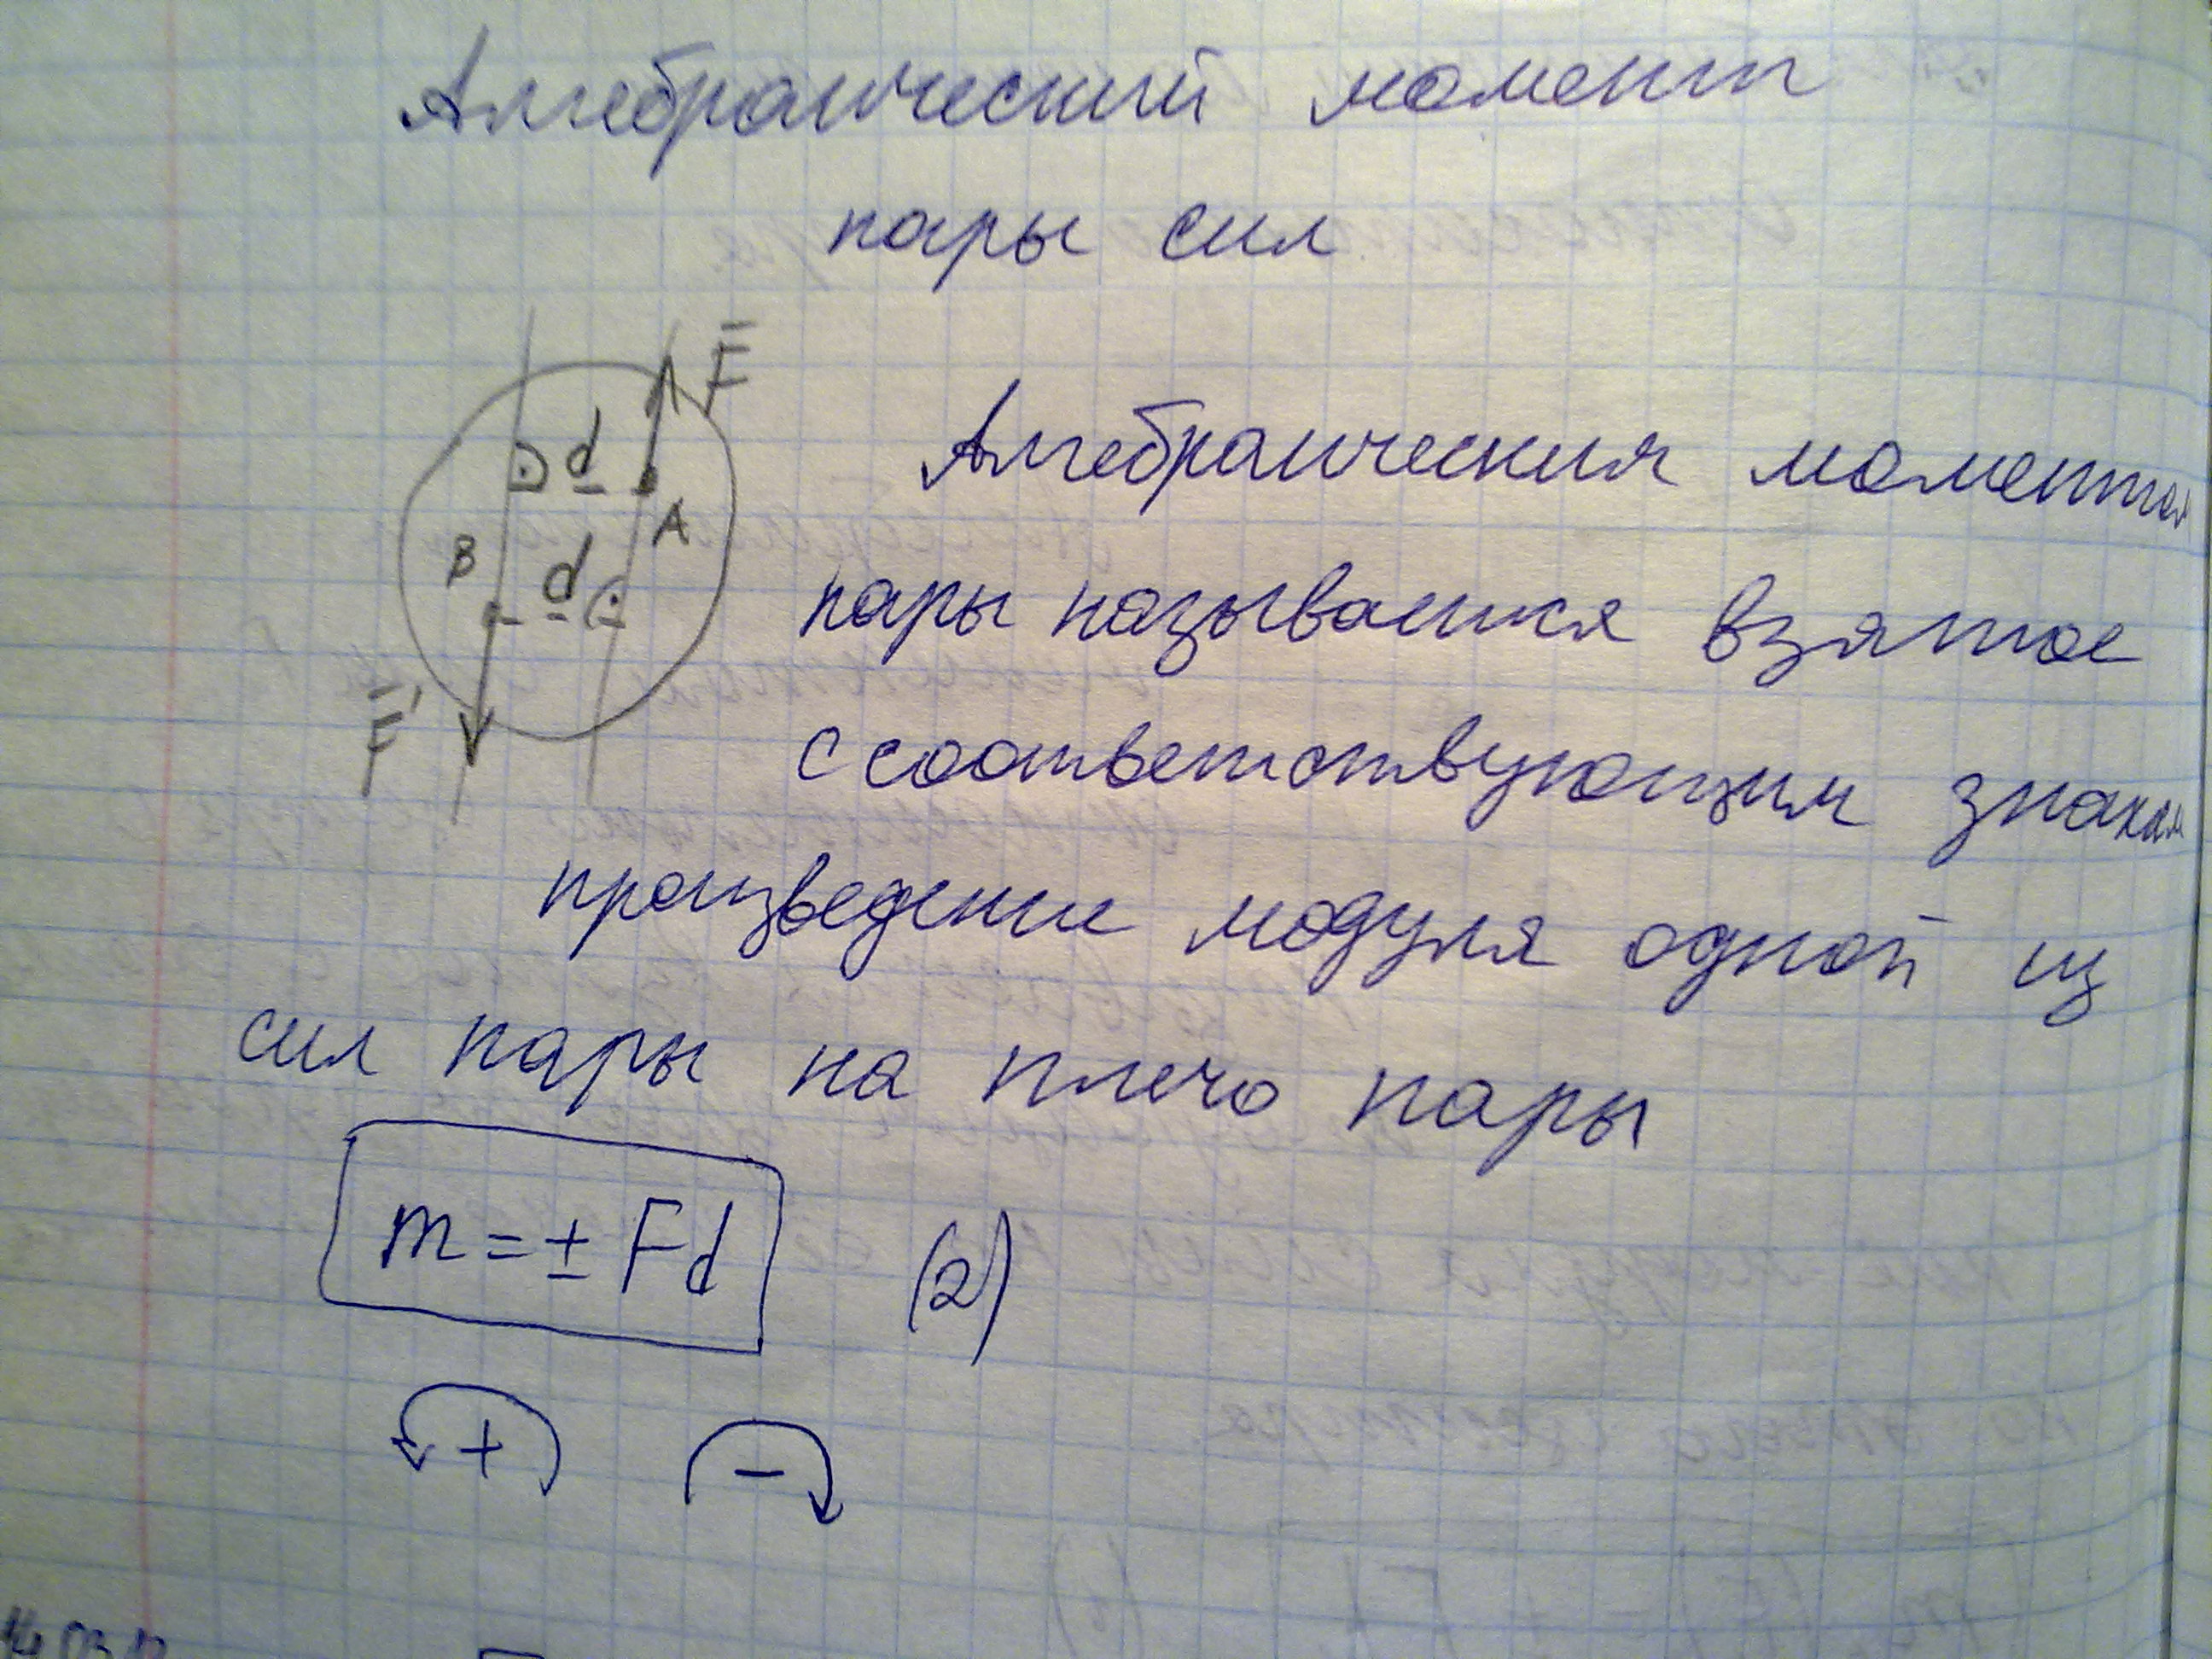 Алгебраический момент
пары сил
F̅
d
A
B
d
F̅'
Алгебраическим моментом
пары называется взятое
с соответствующим знаком
произведение модуля одной из
сил пары на плечо пары
m = ± Fd (2)
+ −